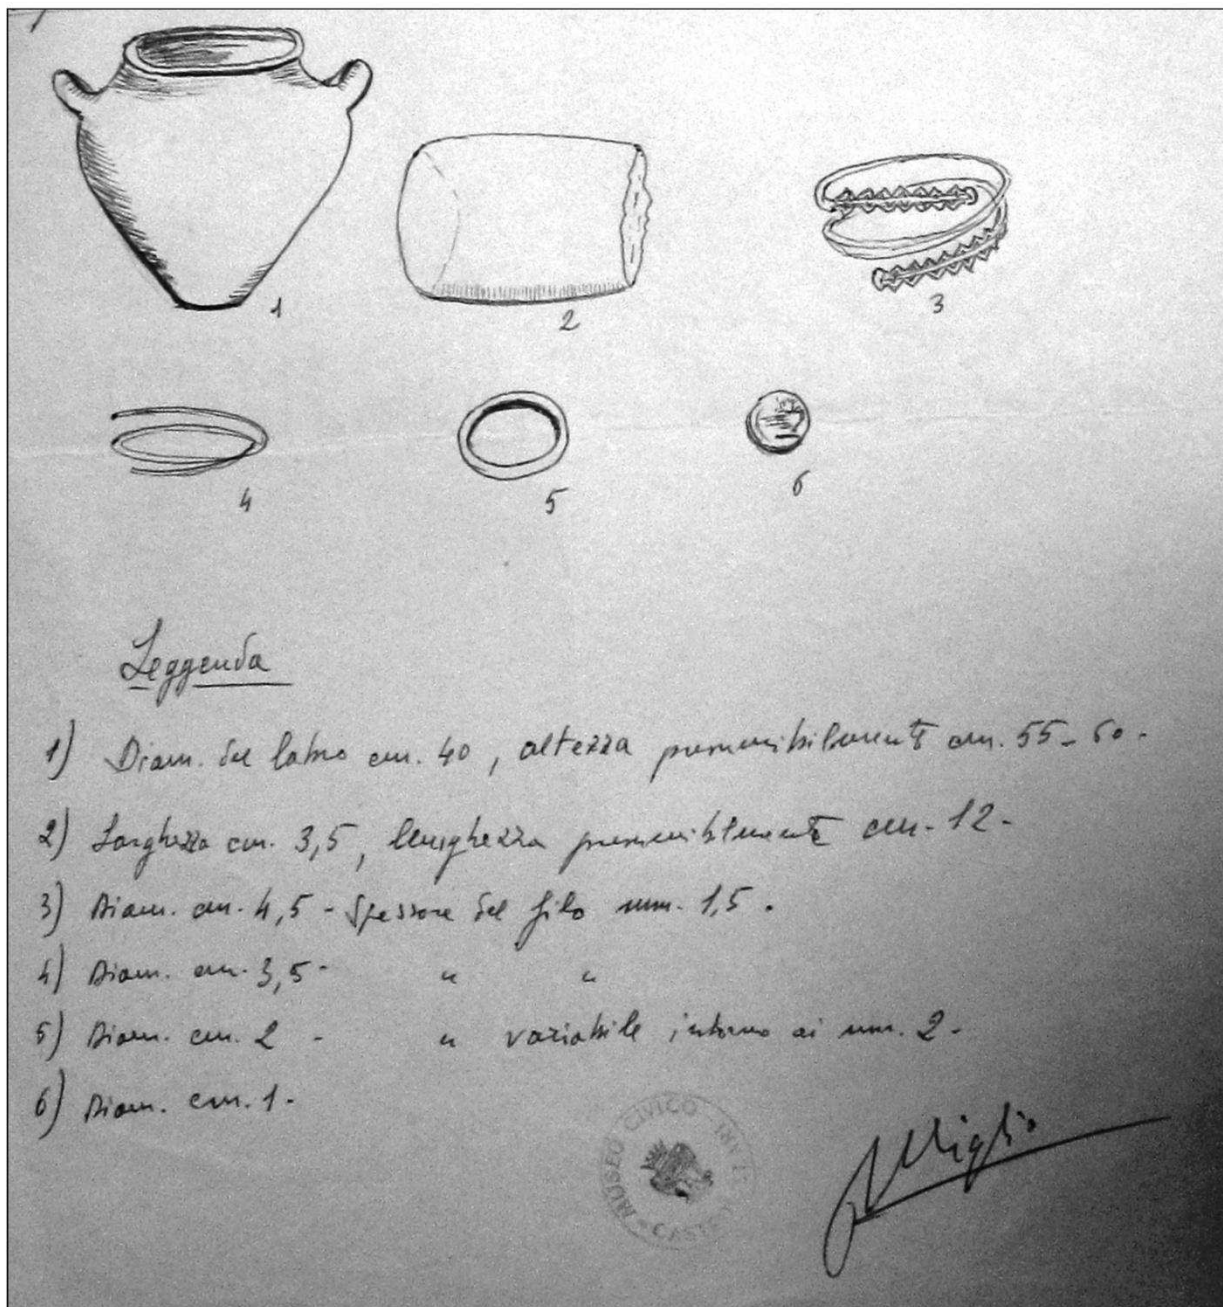 1
2
3
4
5
6
Leggenda
1) Diam. del labro cm. 40, altezza presumibilmente cm. 55-60-
2) Larghezza cm. 3,5, lunghezza presumibilmente cm. 12-
3) Diam. cm. 4,5 - Spessore del filo mm. 1,5.
4) Diam. cm. 3,5- " "
5) Diam. cm. 2 - " variabile intorno ai mm. 2-
6) Diam. cm. 1-
MUSEO CIVICO
Miglio